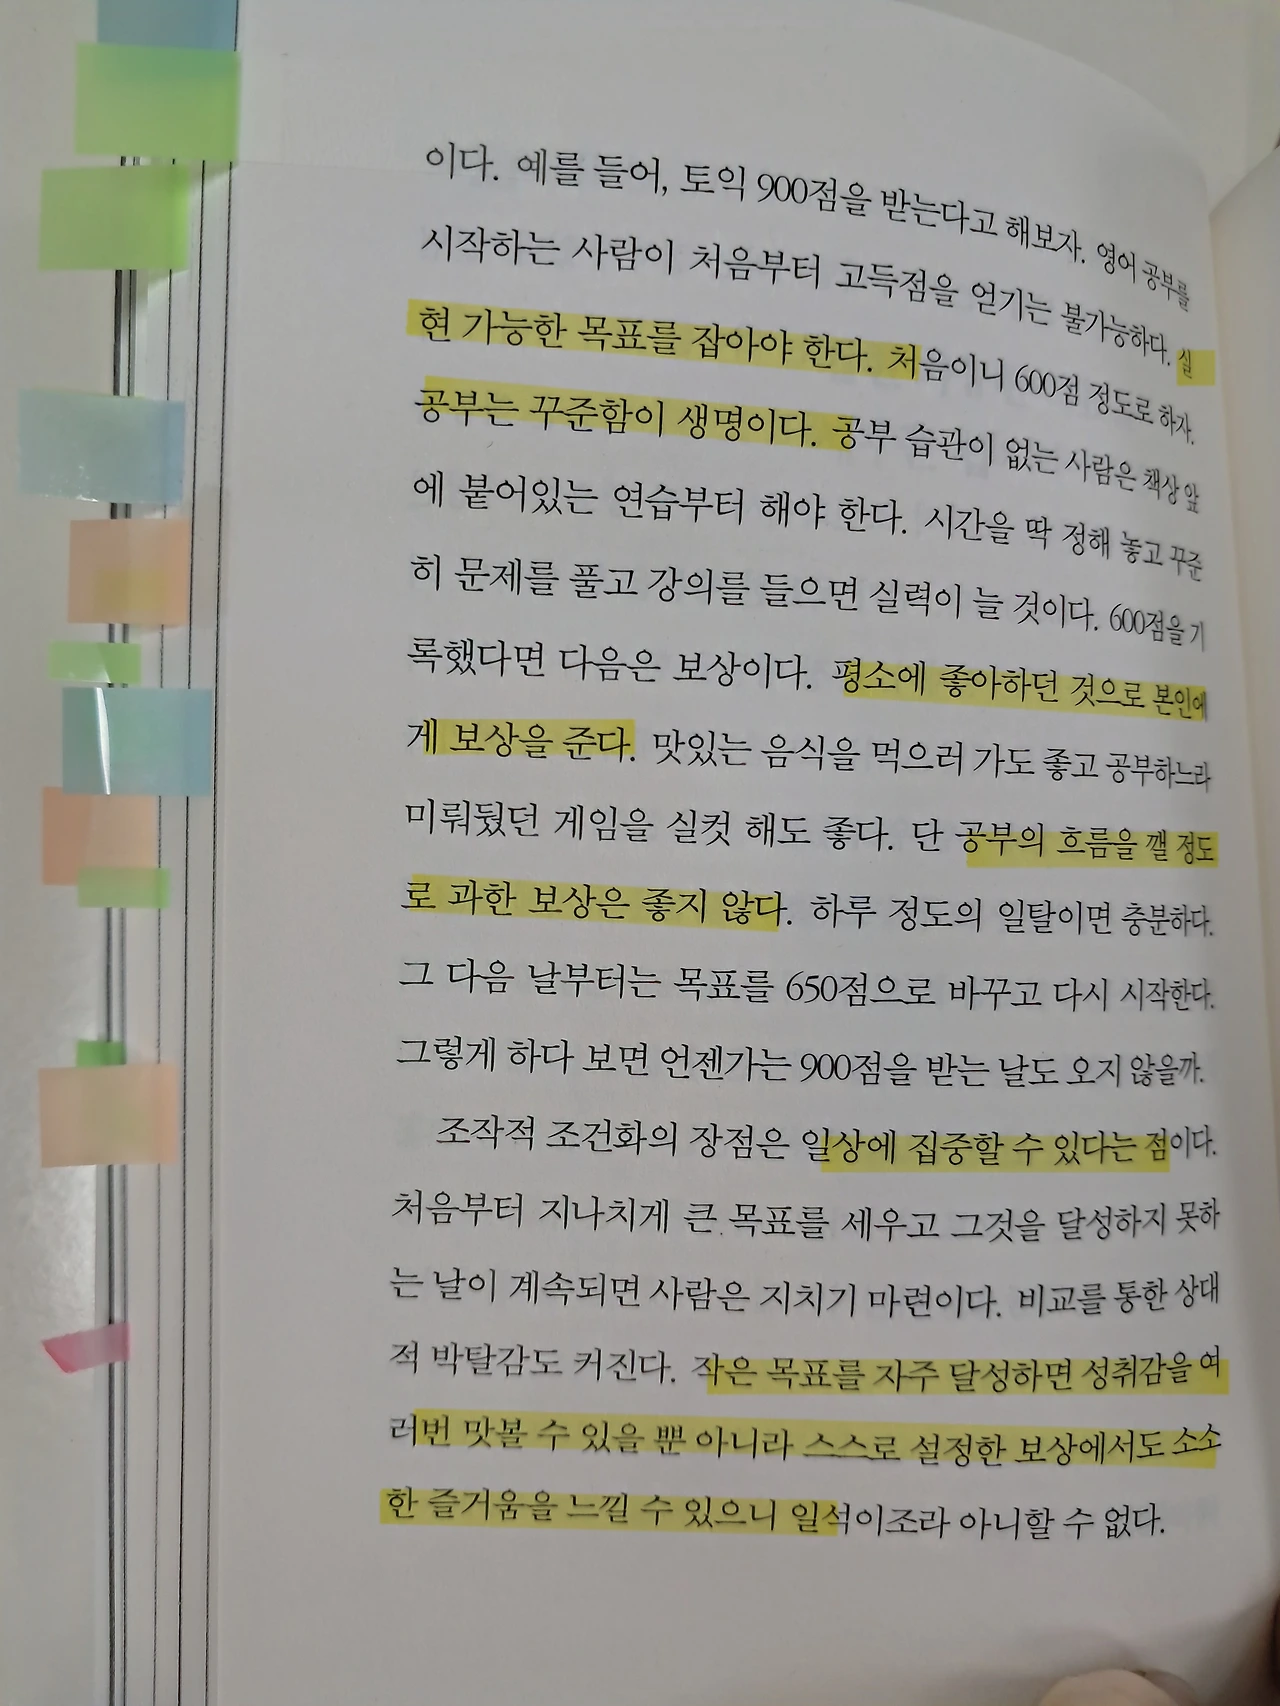 이다. 예를 들어, 토익 900점을 받는다고 해보자. 영어 공부를
시작하는 사람이 처음부터 고득점을 얻기는 불가능하다. 실
현 가능한 목표를 잡아야 한다. 처음이니 600점 정도로 하자.
공부는 꾸준함이 생명이다. 공부 습관이 없는 사람은 책상 앞
에 붙어있는 연습부터 해야 한다. 시간을 딱 정해 놓고 꾸준
히 문제를 풀고 강의를 들으면 실력이 늘 것이다. 600점을 기
록했다면 다음은 보상이다. 평소에 좋아하던 것으로 본인에
게 보상을 준다. 맛있는 음식을 먹으러 가도 좋고 공부하느라
미뤄뒀던 게임을 실컷 해도 좋다. 단 공부의 흐름을 깰 정도
로 과한 보상은 좋지 않다. 하루 정도의 일탈이면 충분하다.
그 다음 날부터는 목표를 650점으로 바꾸고 다시 시작한다.
그렇게 하다 보면 언젠가는 900점을 받는 날도 오지 않을까.
조작적 조건화의 장점은 일상에 집중할 수 있다는 점이다.
처음부터 지나치게 큰 목표를 세우고 그것을 달성하지 못하
는 날이 계속되면 사람은 지치기 마련이다. 비교를 통한 상대
적 박탈감도 커진다. 작은 목표를 자주 달성하면 성취감을 여
러번 맛볼 수 있을 뿐 아니라 스스로 설정한 보상에서도 소소
한 즐거움을 느낄 수 있으니 일석이조라 아니할 수 없다.